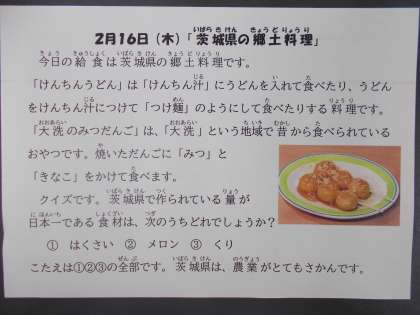 2月16日（木）「茨城県の郷土料理」
今日の給食は茨城県の郷土料理です。
「けんちんうどん」は「けんちん汁」にうどんを入れて食べたり、うどん
をけんちん汁につけて「つけ麺」のようにして食べたりする料理です。
「大洗のみつだんご」は、「大洗」という地域で昔から食べられている
おやつです。焼いただんごに「みつ」と
「きなこ」をかけて食べます。
クイズです。茨城県で作られている量が
日本一である食材は、次のうちどれでしょうか？
① はくさい ② メロン ③ くり
こたえは①②③の全部です。茨城県は、農業がとてもさかんです。